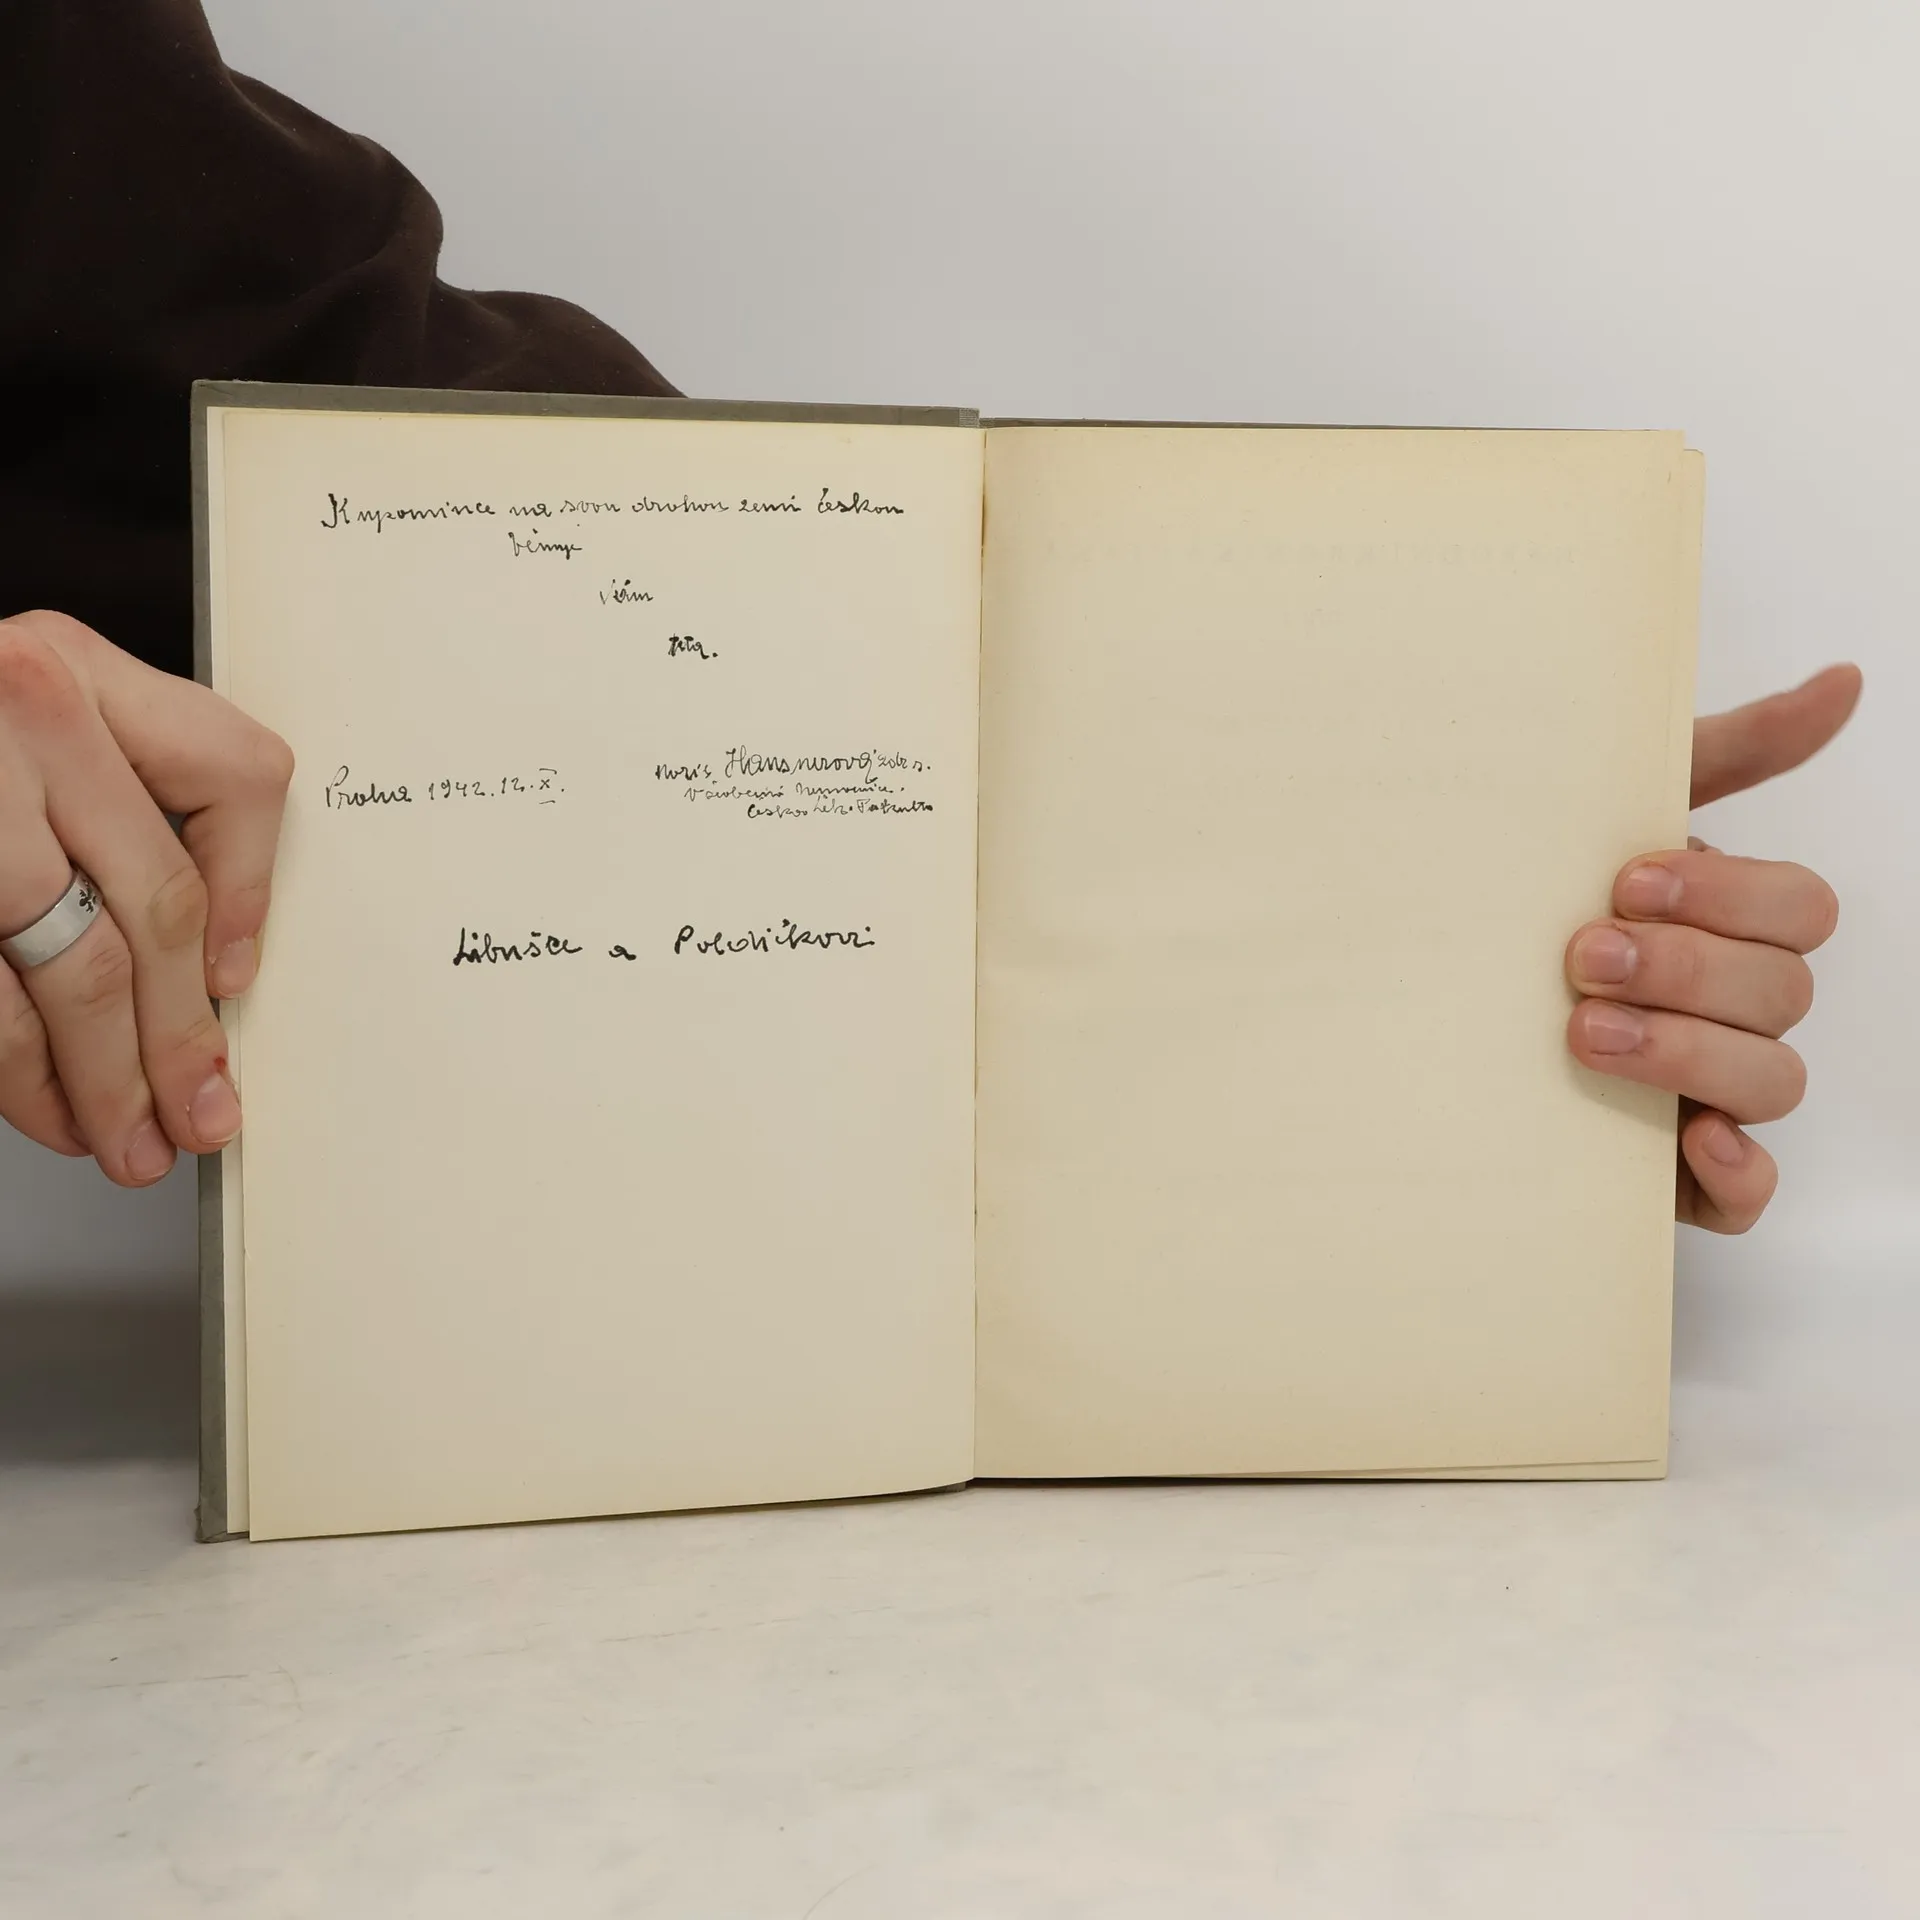 K upomínce na svou drahou zemi českou
věnuje
Vám
Praha 1942.12.X.
Hausnerová
Všeobecná Nemocnice.
Česko Lék. Fakulta
Libušce a Poldíkovi